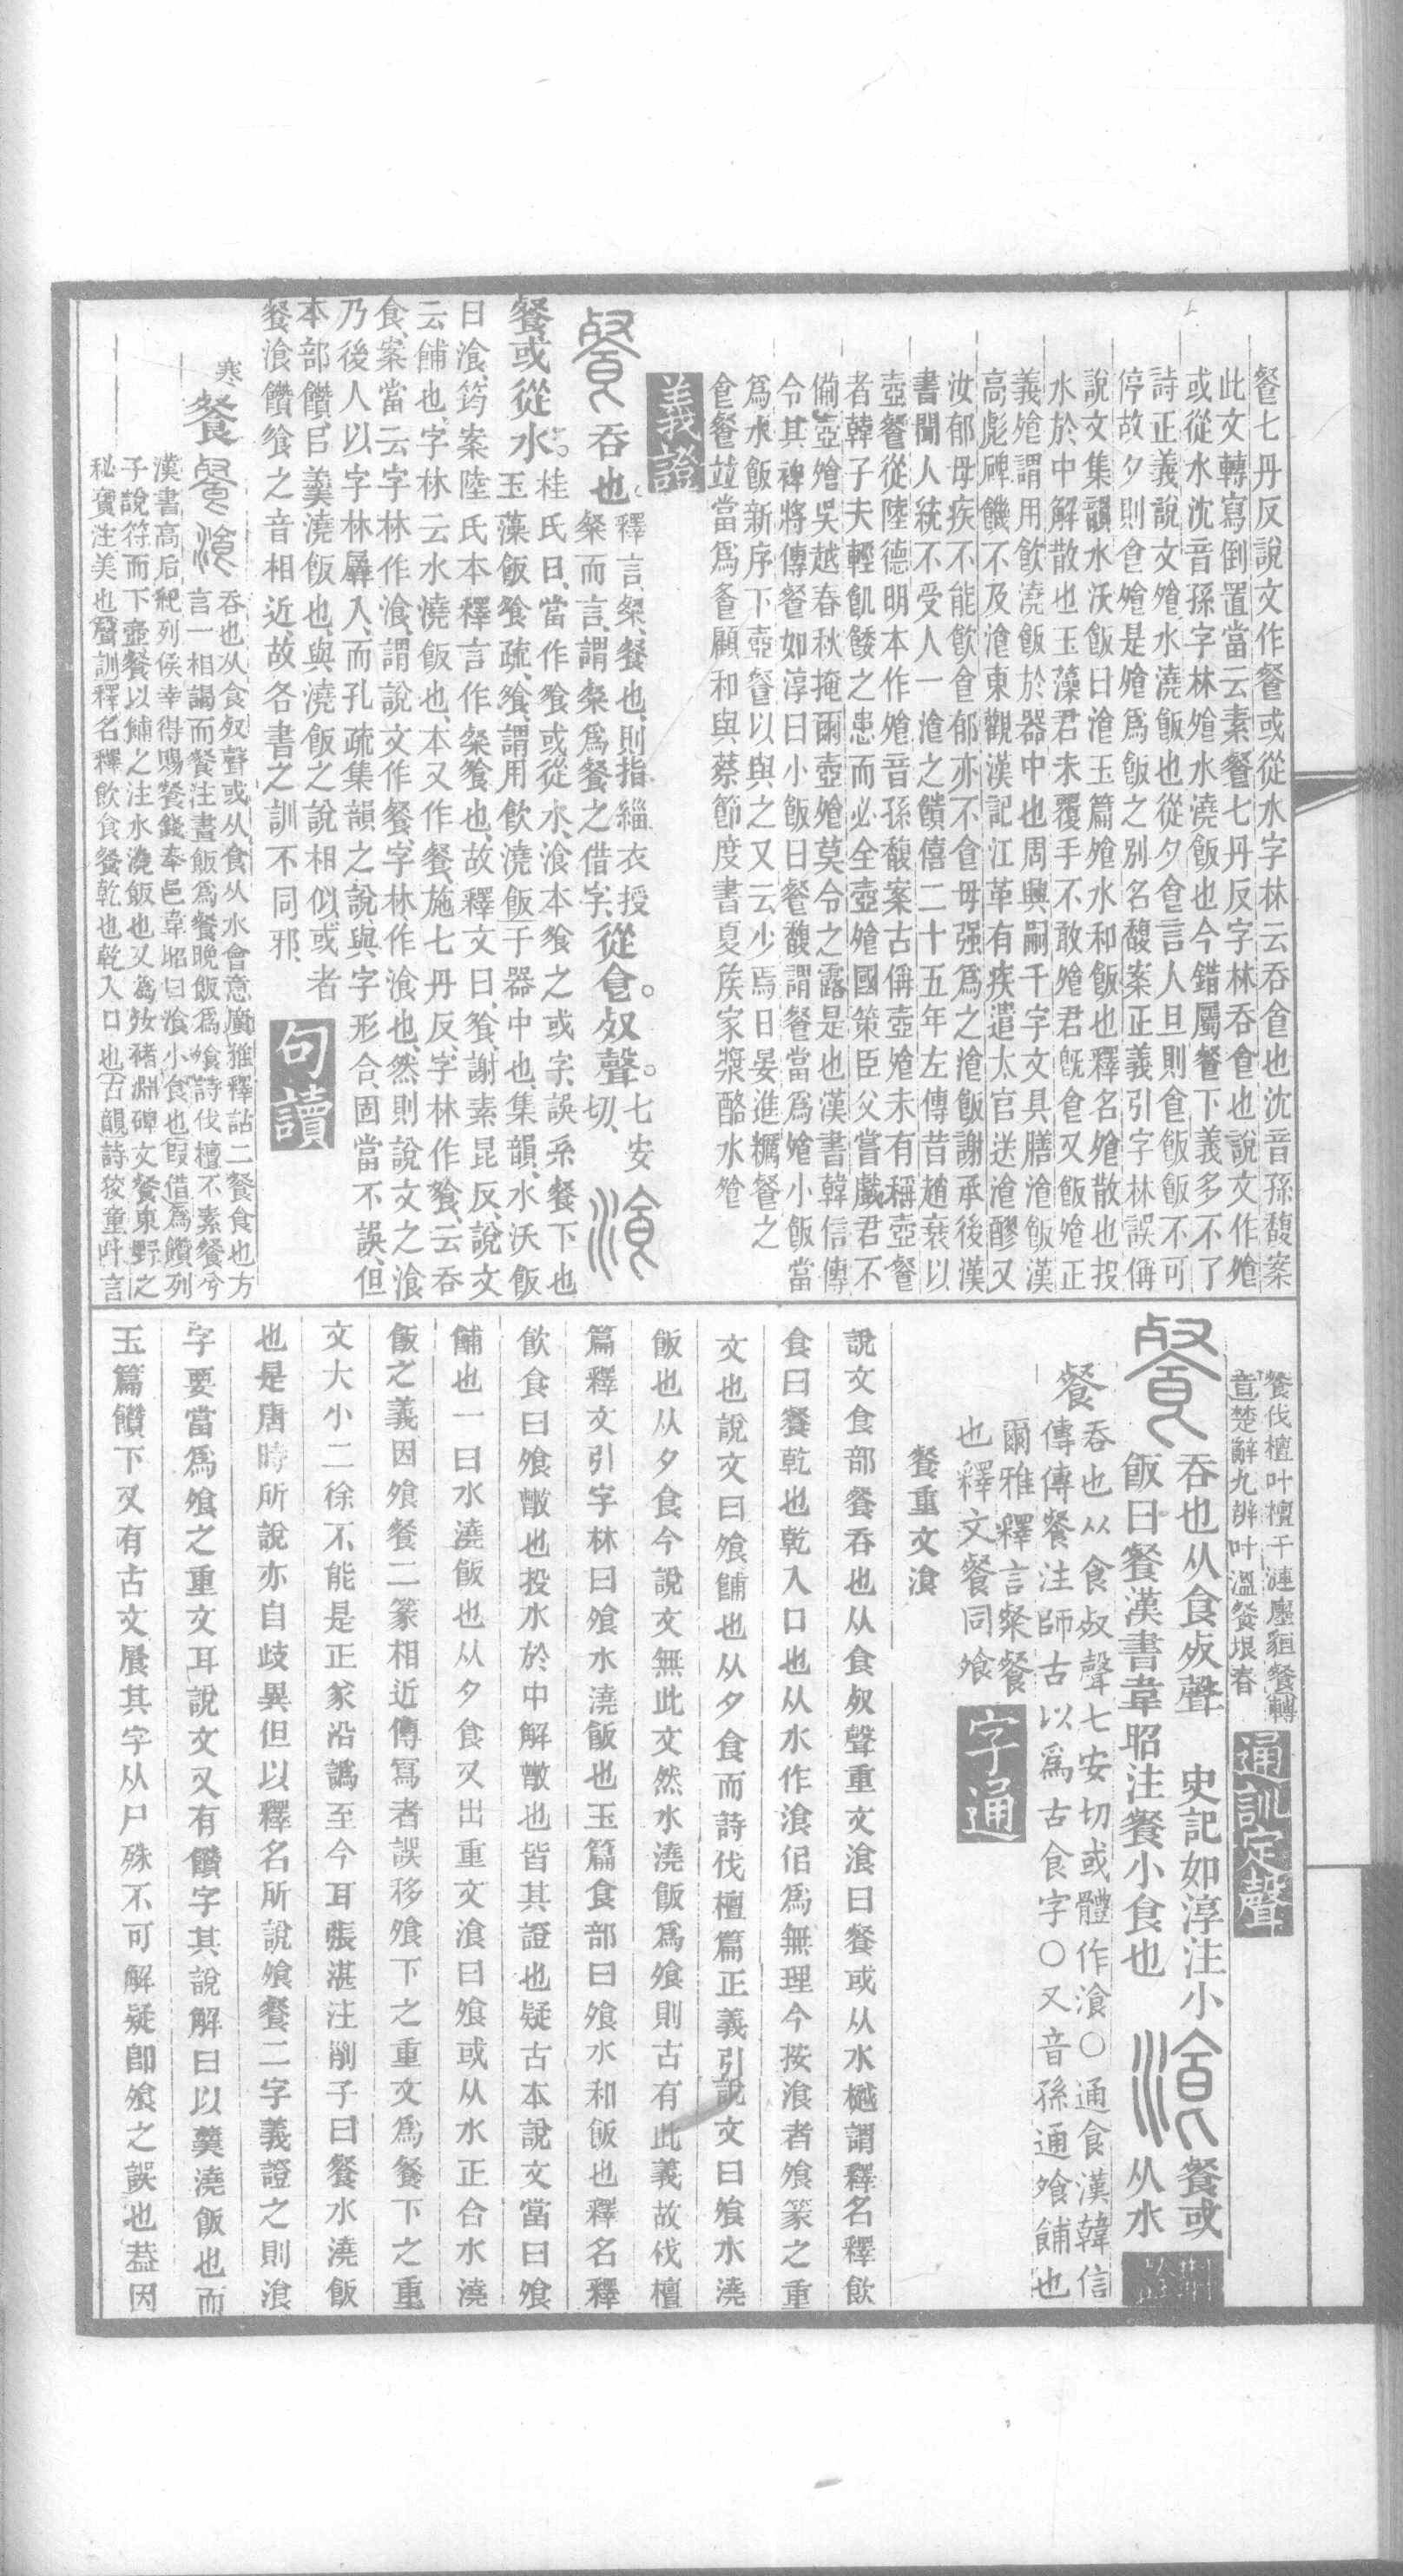 餐七丹反說文作餐或從水字林云吞食也沈音孫馥案
此文轉寫倒置當云素餐七丹反字林吞食也說文作飱
或從水沈音孫字林飱水澆飯也今錯屬餐下義多不了
詩正義說文飱水澆飯也從夕食言人旦則食飯飯不可
停故夕則食飱是飱爲飯之別名馥案正義引字林誤偁
說文集韻水沃飯曰湌玉篇飱水和飯也釋名飱散也投
水於中解散也玉藻君未覆手不敢飱君旣食又飯飱正
義飱謂用飲澆飯於器中也周興嗣千字文具膳湌飯漢
高彪碑饑不及湌東觀漢記江革有疾遣太官送湌醪又
汝郁母疾不能飲食郁亦不食母强爲之湌飯謝承後漢
書聞人統不受人一湌之饋僖二十五年左傳昔趙衰以
壺餐從陸德明本作飱音孫馥案古偁壺飱未有稱壺餐
者韓子夫輕飢餒之患而必全壺飱國策臣父嘗戲君不
備壺飱吳越春秋掩爾壺飱莫令之露是也漢書韓信傳
令其裨將傳餐如淳曰小飯曰餐馥謂餐當爲飱小飯當
爲水飯新序下壺餐以與之又云少焉日晏進糲餐之
食餐竝當爲飱顧和與蔡節度書夏矦家漿酪水飱
義證
餐吞也釋言粲餐也則指緇衣授
粲而言謂粲爲餐之借字從食𣦻聲七安
切湌
餐或從水桂氏曰當作飱或從水湌本飱之或字誤系餐下也
玉藻飯飱疏飱謂用飲澆飯于器中也集韻水沃飯
曰湌筠案陸氏本釋言作粲飱也故釋文曰飱謝素昆反說文
云餔也字林云水澆飯也本又作餐施七丹反字林作飱云吞
食案當云字林作湌謂說文作餐字林作湌也然則說文之湌
乃後人以字林羼入而孔疏集韻之說與字形合固當不誤但
本部饡㠯羹澆飯也與澆飯之說相似或者
餐湌饡飱之音相近故各書之訓不同邪
句讀
寒
餐餐湌吞也从食𣦻聲或从食从水會意廣雅釋詁二餐食也方
言一相謁而餐注晝飯爲餐晚飯爲飧詩伐檀不素餐兮
漢書高后紀列侯幸得賜餐錢奉邑韋昭曰湌小食也叚借爲饡列
子說符而下壺餐以餔之注水澆飯也又爲㛂豬淵碑文餐東野之
秘寶注美也聲訓釋名釋飲食餐乾也乾入口也古韻詩狡童叶言
餐伐檀叶檀干漣廛貆餐轉
音楚辭九辨叶溫餐垠春
通訓定聲
餐吞也从食𣦻聲 史記如淳注小
飯曰餐漢書韋昭注餐小食也 湌餐或
从水
餐吞也从食𣦻聲七安切或體作湌○通食漢韓信
傳傳餐注師古以爲古食字○又音孫通飧餔也
爾雅釋言粲餐
也釋文餐同飧
字通
餐重文湌
說文食部餐吞也从食𣦻聲重文湌曰餐或从水樾謂釋名釋飲
食曰餐乾也乾入口也从水作湌佀爲無理今按湌者飧篆之重
文也說文曰飧餔也从夕食而詩伐檀篇正義引說文曰飧水澆
飯也从夕食今說文無此文然水澆飯爲飧則古有此義故伐檀
篇釋文引字林曰飧水澆飯也玉篇食部曰飧水和飯也釋名釋
飲食曰飧㪚也投水於中解㪚也皆其證也疑古本說文當曰飧
餔也一曰水澆飯也从夕食又出重文湌曰飧或从水正合水澆
飯之義因飧餐二篆相近傳寫者誤移飧下之重文爲餐下之重
文大小二徐不能是正家沿譌至今耳張湛注列子曰餐水澆飯
也是唐時所說亦自歧異但以釋名所說飧餐二字義證之則湌
字要當爲飧之重文耳說文又有饡字其說解曰以羹澆飯也而
玉篇饡下又有古文𡳐其字从尸殊不可解疑卽飧之誤也葢因